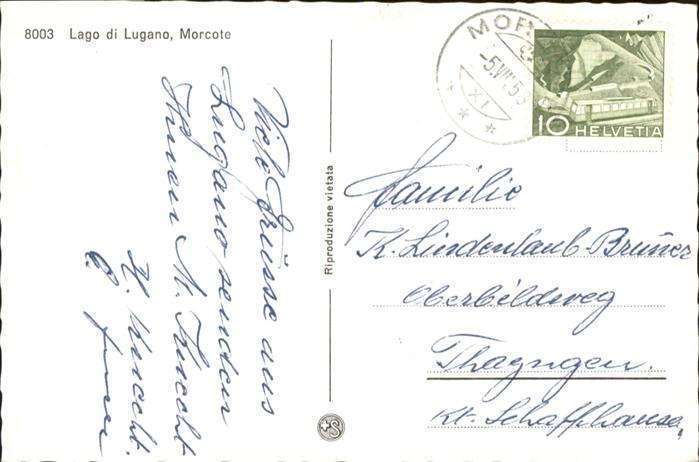 8003 Lago di Lugano, Morcote
Viele Grüsse aus
Lugano senden
Ihnen M. Knecht
H. Knecht.
Riproduzione vietata
MOR
-5.VII.53
XI
10 HELVETIA
Familie
K. Lindenlaub-Brüner
Oberbildweg
Thayngen.
Kt. Schaffhausen